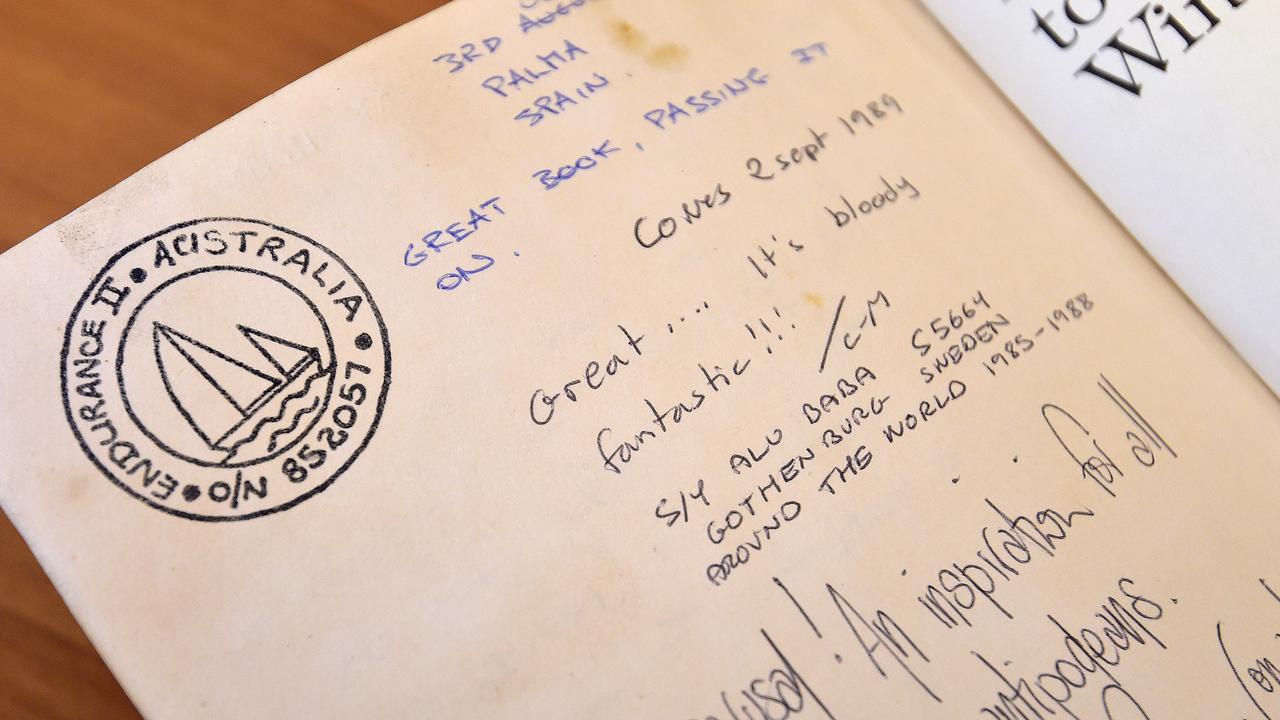 3RD AUGUST
PALMA
SPAIN.
GREAT BOOK, PASSING IT
ON.
Cowes 2 sept 1989
Great .... It's bloody
fantastic!!! / C-M
S/Y ALU BABA S5664
GOTHENBURG SWEDEN
AROUND THE WORLD 1985-1988
! An inspiration for all
antipodeans.
ENDURANCE II • AUSTRALIA •
O/N 852057 •
to